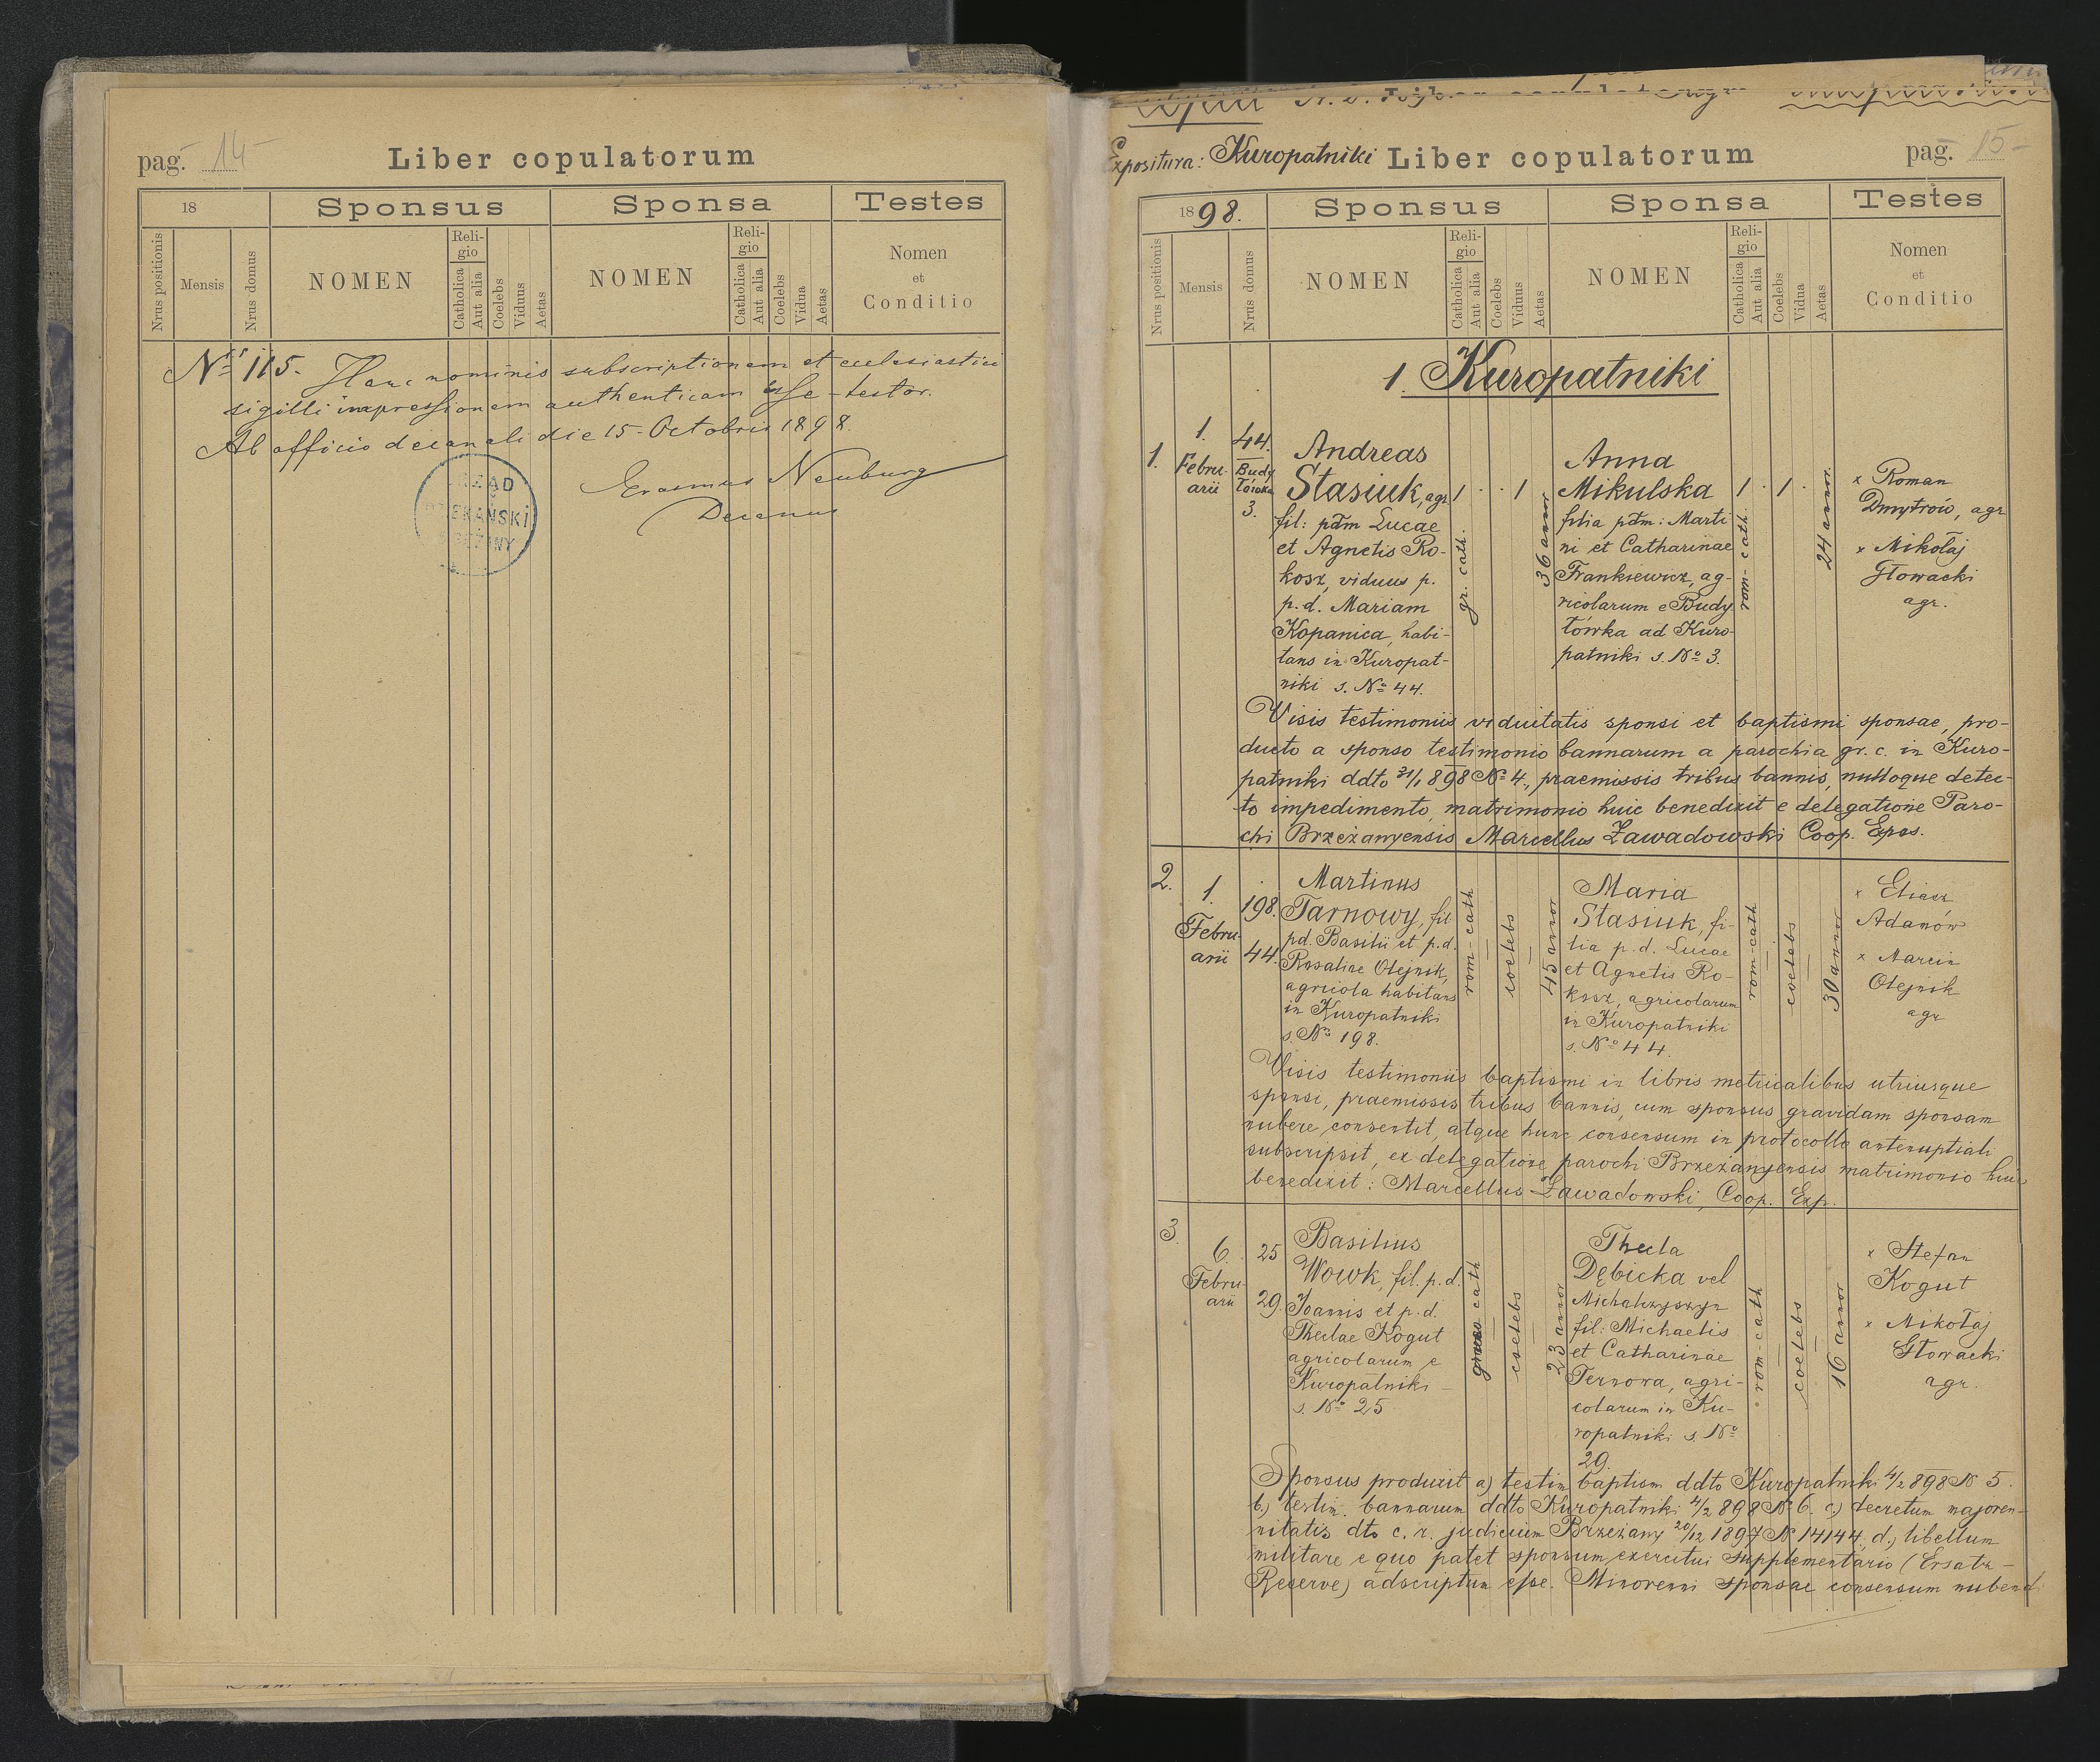 pag. 14
Liber copulatorum
18
Sponsus
Sponsa
Testes
Nrus positionis
Mensis
Nrus domus
NOMEN
Reli-
gio
Catholica
Aut alia
Coelebs
Viduus
Aetas
NOMEN
Reli-
gio
Catholica
Aut alia
Coelebs
Vidua
Aetas
Nomen
et
Conditio
No 115. Hanc nominis subscriptionem et ecclesiastici
sigilli impressionem authenticam esse testor.
Ab officio decanali die 15 Octobris 1898.
Erasmus Neuburg
Decanus
Expositura: Kuropatniki Liber copulatorum
pag. 15
1898.
Sponsus
Sponsa
Testes
Nrus positionis
Mensis
Nrus domus
NOMEN
Reli-
gio
Catholica
Aut alia
Coelebs
Viduus
Aetas
NOMEN
Reli-
gio
Catholica
Aut alia
Coelebs
Vidua
Aetas
Nomen
et
Conditio
1. Kuropatniki
1.
1.
Febru-
arii
44.
Budy
łówka
3.
Andreas
Stasiuk, agr
fil: pdm Lucae
et Agnetis Ro-
kosz, viduus p.
p. d. Mariam
Kopanica, habi-
tans in Kuropat-
niki s. No 44.
gr. cath.
36 annor
Anna
Mikulska
filia pdm: Marti
ni et Catharinae
Frankiewicz, ag-
ricolarum e Budy
łówka ad Kuro-
patniki s. No 3.
rom-cath.
24 annor.
x Roman
Dmytrów, agr
x Mikołaj
Głowacki
agr.
Visis testimoniis viduitatis sponsi et baptismi sponsae, pro-
ducto a sponso testimonio bannarum a parochia gr. c. in Kuro-
patniki ddto 31/1 898 No 4, praemissis tribus bannis, nulloque detec-
to impedimento, matrimonio huic benedixit e delegatione Paro-
chi Brzeżanyensis Marcellus Zawadowski Coop. Expos.
2.
1.
Febru-
arii
198.
44.
Martinus
Tarnowy, fil
pd. Basilii et p.d.
Rosaliae Olejnik,
agricola habitans
in Kuropatniki
s. No 198.
rom-cath
coelebs
45 annor
Maria
Stasiuk, fi-
lia p. d. Lucae
et Agnetis Ro-
kosz, agricolarum
in Kuropatniki
s. No 44.
rom-cath
coelebs
30 annor
x Eliasz
Adamów
x Marcin
Olejnik
agr
Visis testimoniis baptismi in libris metricalibus utriusque
sponsi, praemissis tribus bannis, cum sponsus gravidam sponsam
nubere consentit, atque hunc consensum in protocollo antenuptiali
subscripsit, ex delegatione parochi Brzeżanyensis matrimonio huic
benedixit: Marcellus Zawadowski, Coop. Exp.
3.
6.
Febru-
arii
25
29.
Basilius
Wowk, fil. p. d.
Joannis et p. d.
Theclae Kogut
agricolarum e
Kuropatniki
s. No 25
graeco cath
coelebs
23 annor
Thecla
Dębicka vel
Michalczyszyn
fil: Michaelis
et Catharinae
Ternowa, agri-
colarum in Ku-
ropatniki s. No
29.
rom-cath
coelebs
16 annor
x Stefan
Kogut
x Mikołaj
Głowacki
agr.
Sponsus produxit a) testim baptism ddto Kuropatniki 4/2 898 N 5.
b.) testim. bannarum ddto Kuropatniki 4/2 898 No 6. c.) decretum majoren-
nitatis dto c. r. judicium Brzeżany 20/12 1897 No 14144, d.) libellum
militare e quo patet sponsum exercitui supplementario (Ersatz-
Reserve) adscriptum esse. Minorenni sponsae consensum nubendi